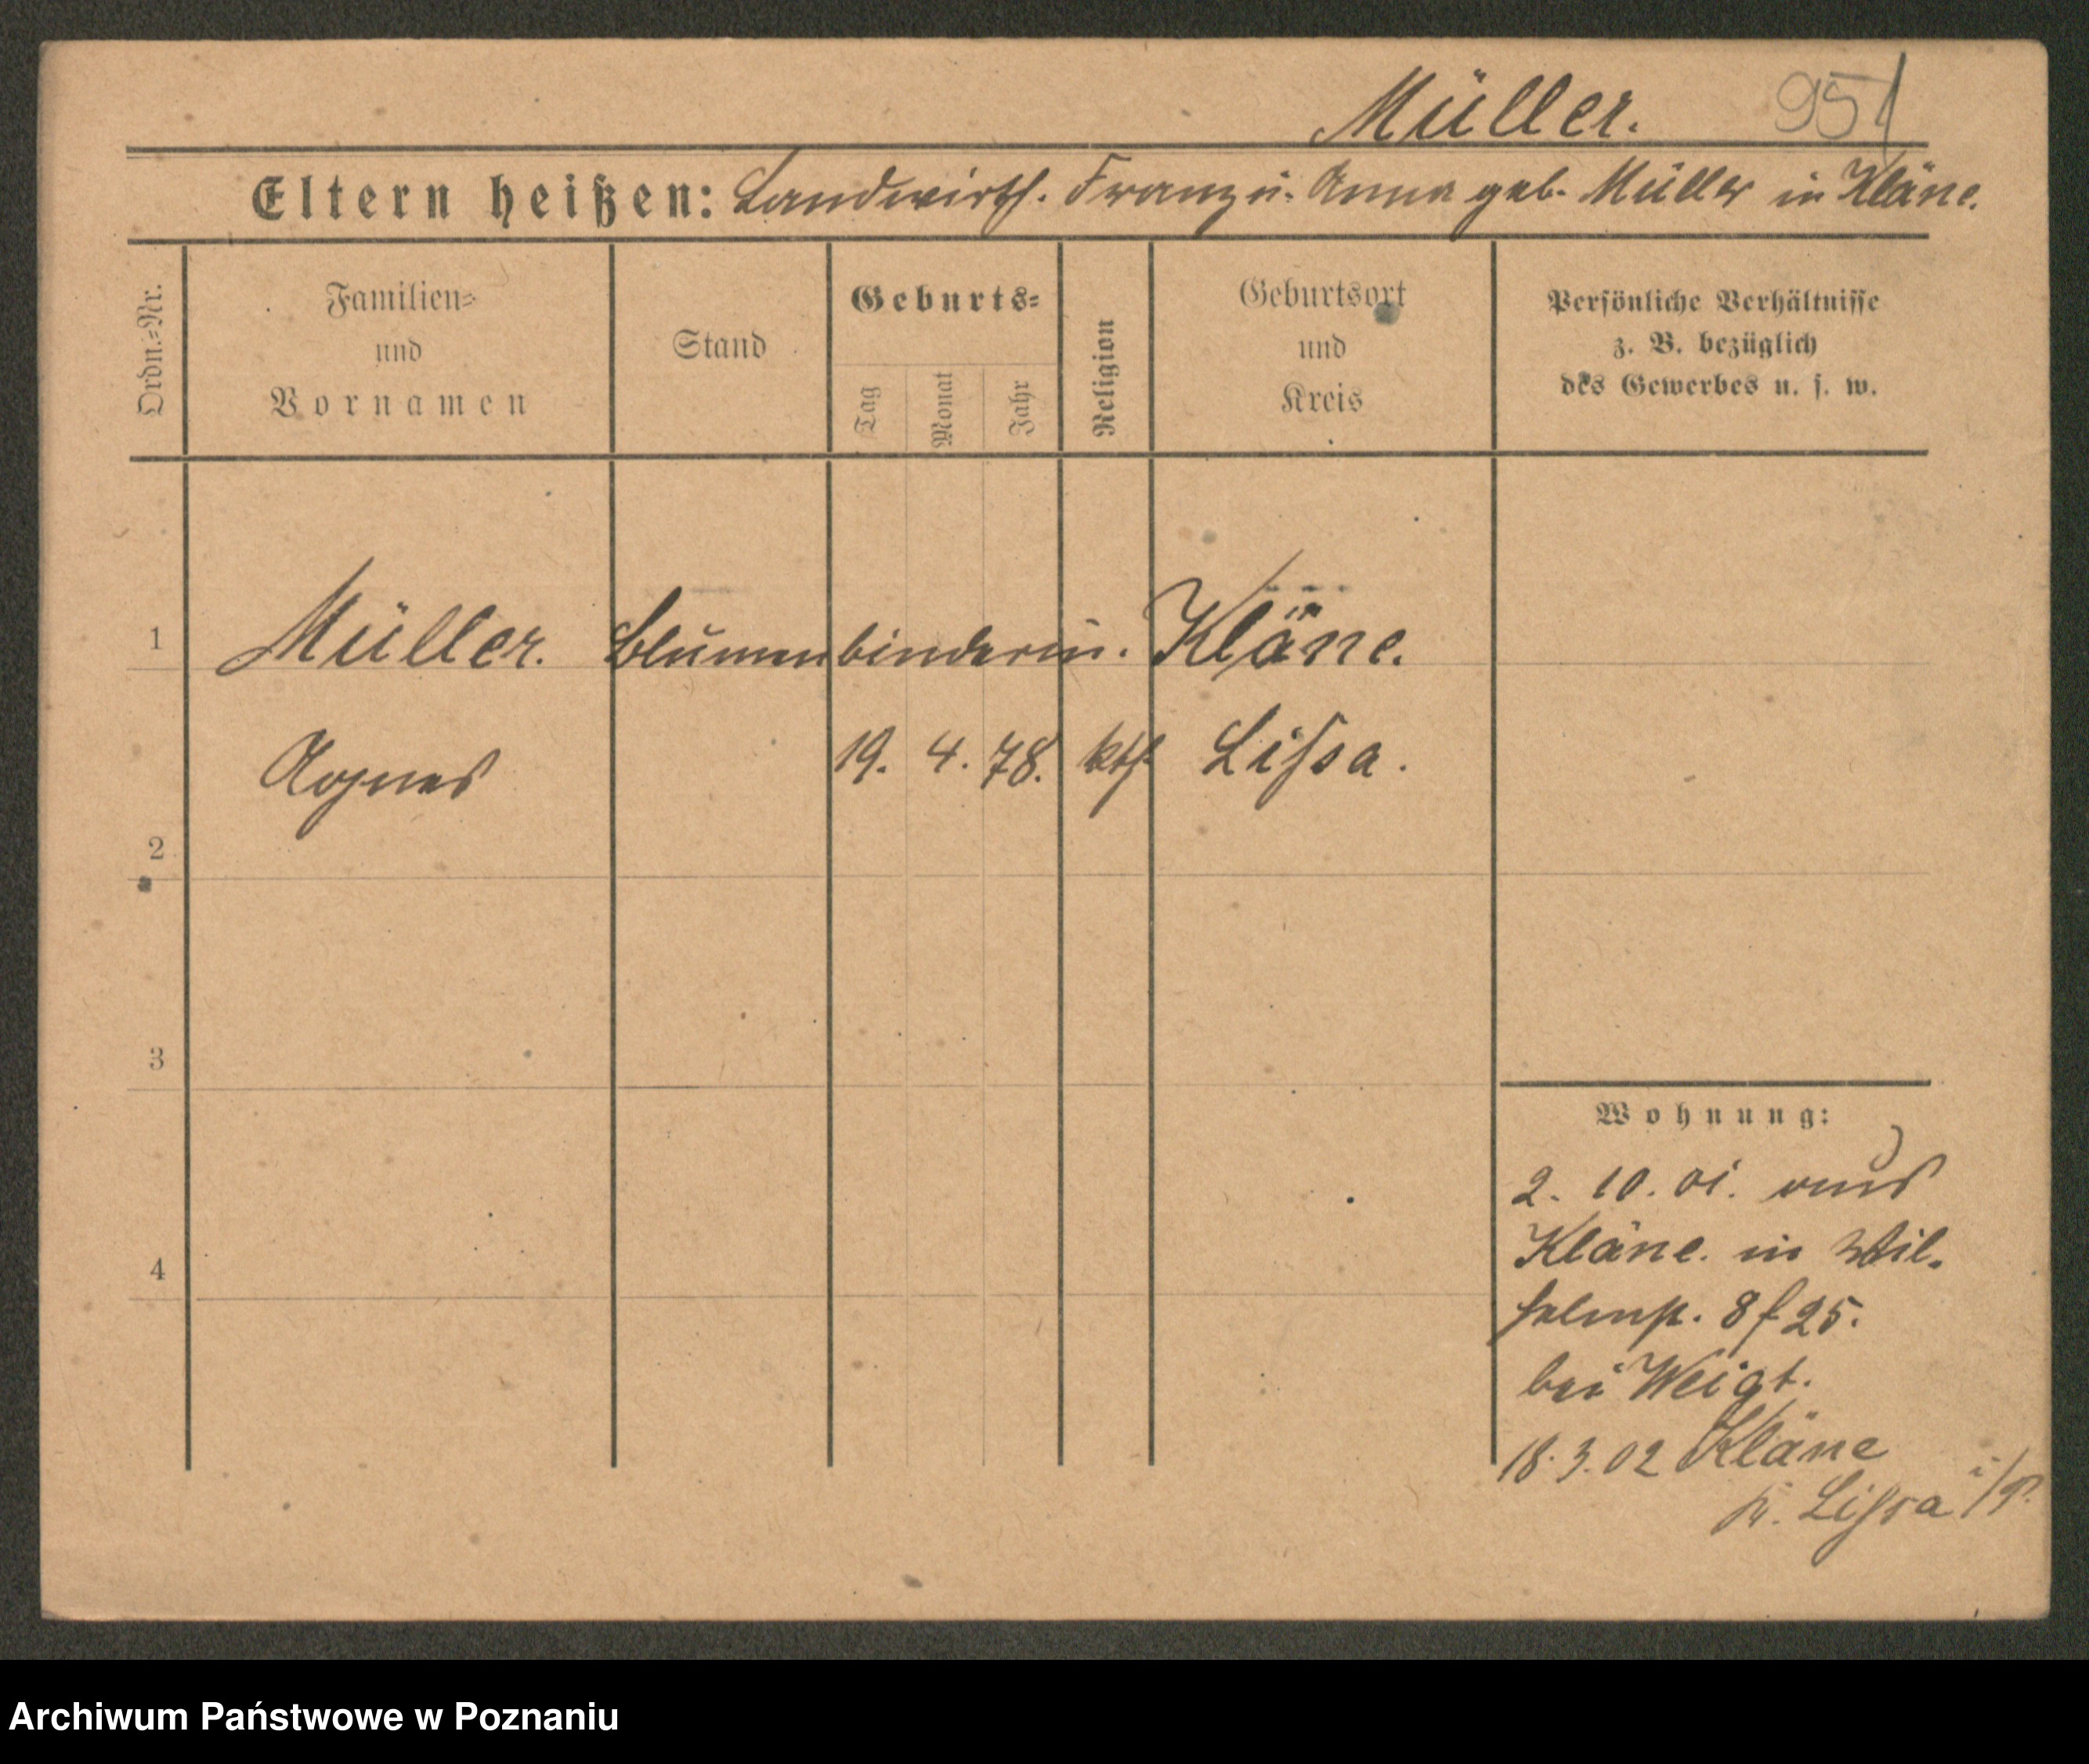 Müller. 951
Eltern heißen: Landwirth. Franz u. Anna geb. Müller in Kläne.
Ordn.=Nr.
Familien=
und
Vornamen
Stand
Geburts=
Tag
Monat
Jahr
Religion
Geburtsort
und
Kreis
Persönliche Verhältnisse
z. B. bezüglich
des Gewerbes u. s. w.
1 Müller. Blumenbinderin. Kläne.
Agnes 19. 4. 78. kth. Lissa.
2
3
4
Wohnung:
2. 10. 01. aus
Kläne. in Wil-
helmst. 8 f 25.
bei Weigt.
18. 3. 02 Kläne
Lissa i/P.
Archiwum Państwowe w Poznaniu